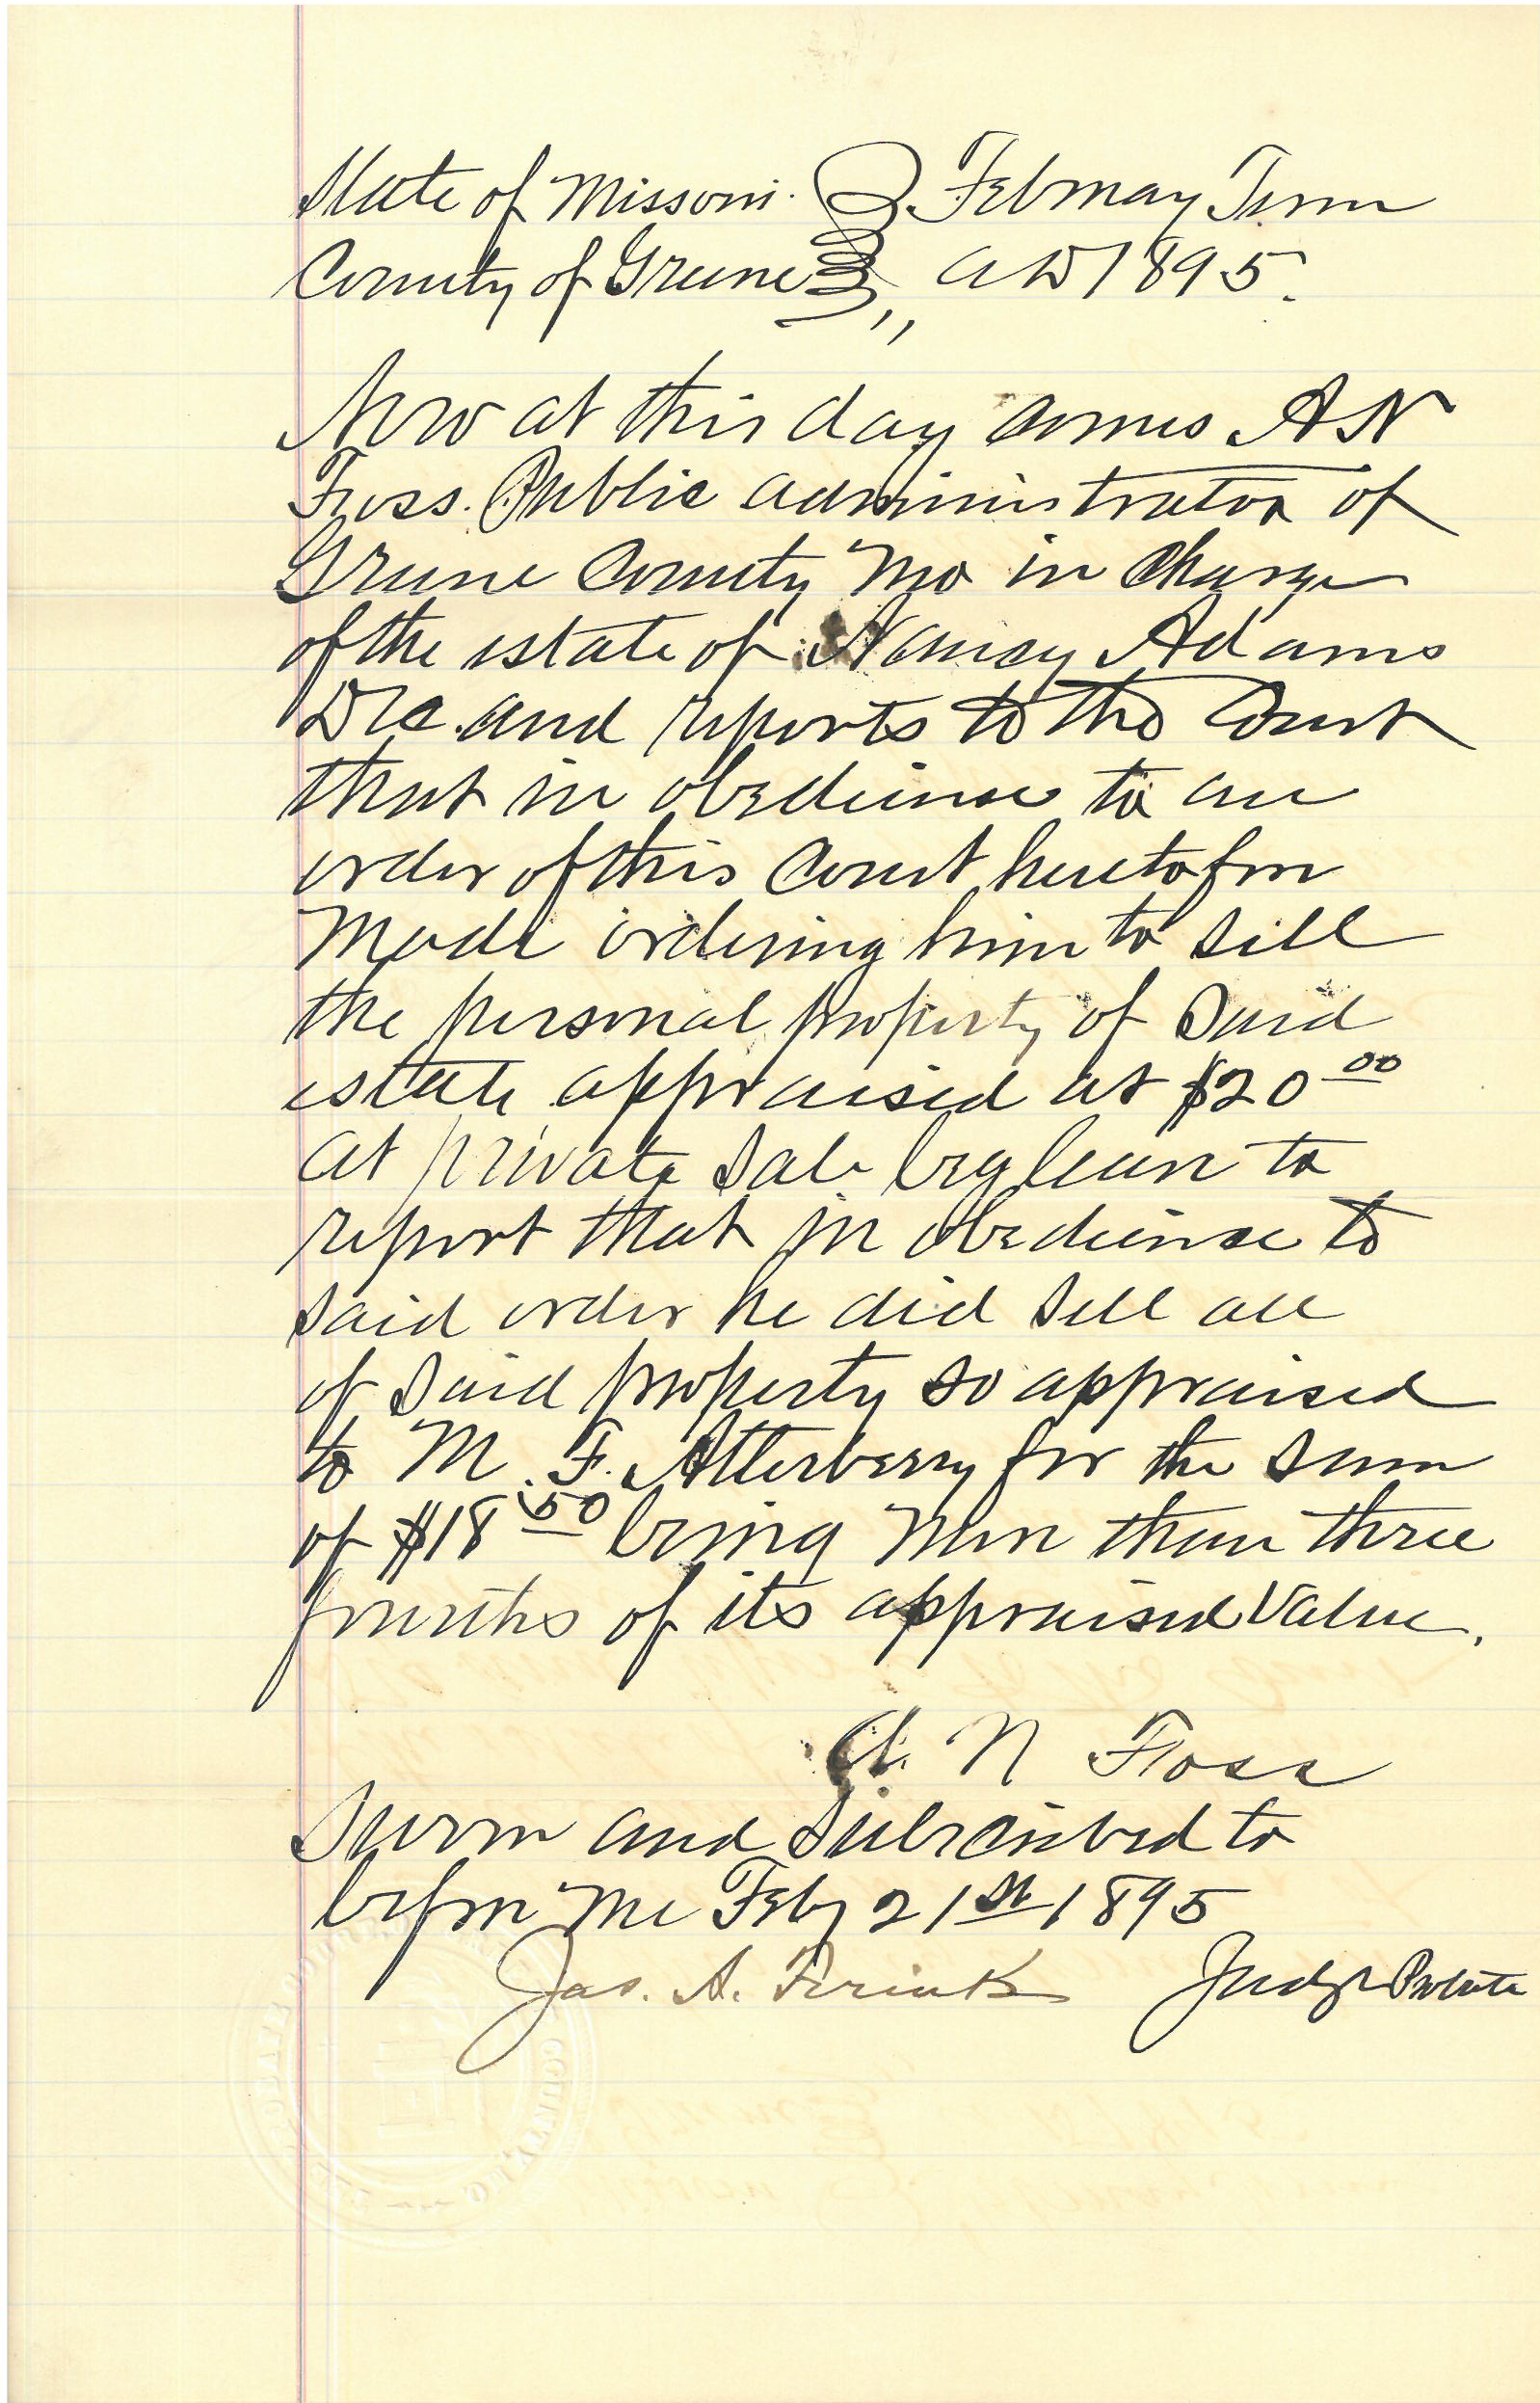 State of Missouri. } February Term
County of Greene } ,, AD 1895.
Now at this day comes AN
Fuss. Public administrator of
Greene County Mo in Charge
of the estate of Nancy Adams
Dec. and reports to the Court
that in obedience to an
order of this Court heretofore
Made ordering him to sell
the personal property of Said
estate appraised at $20 00
at private Sale beg leave to
report that in obedience to
said order he did sell all
of Said property so appraised
to M. F. Atterberry for the sum
of $18 50 being More than three
fourths of its appraised Value.
A. N Foss
Sworn and Subscribed to
before Me Feby 21st 1895
Jas. A. Judge Probate
COUNTY, MO